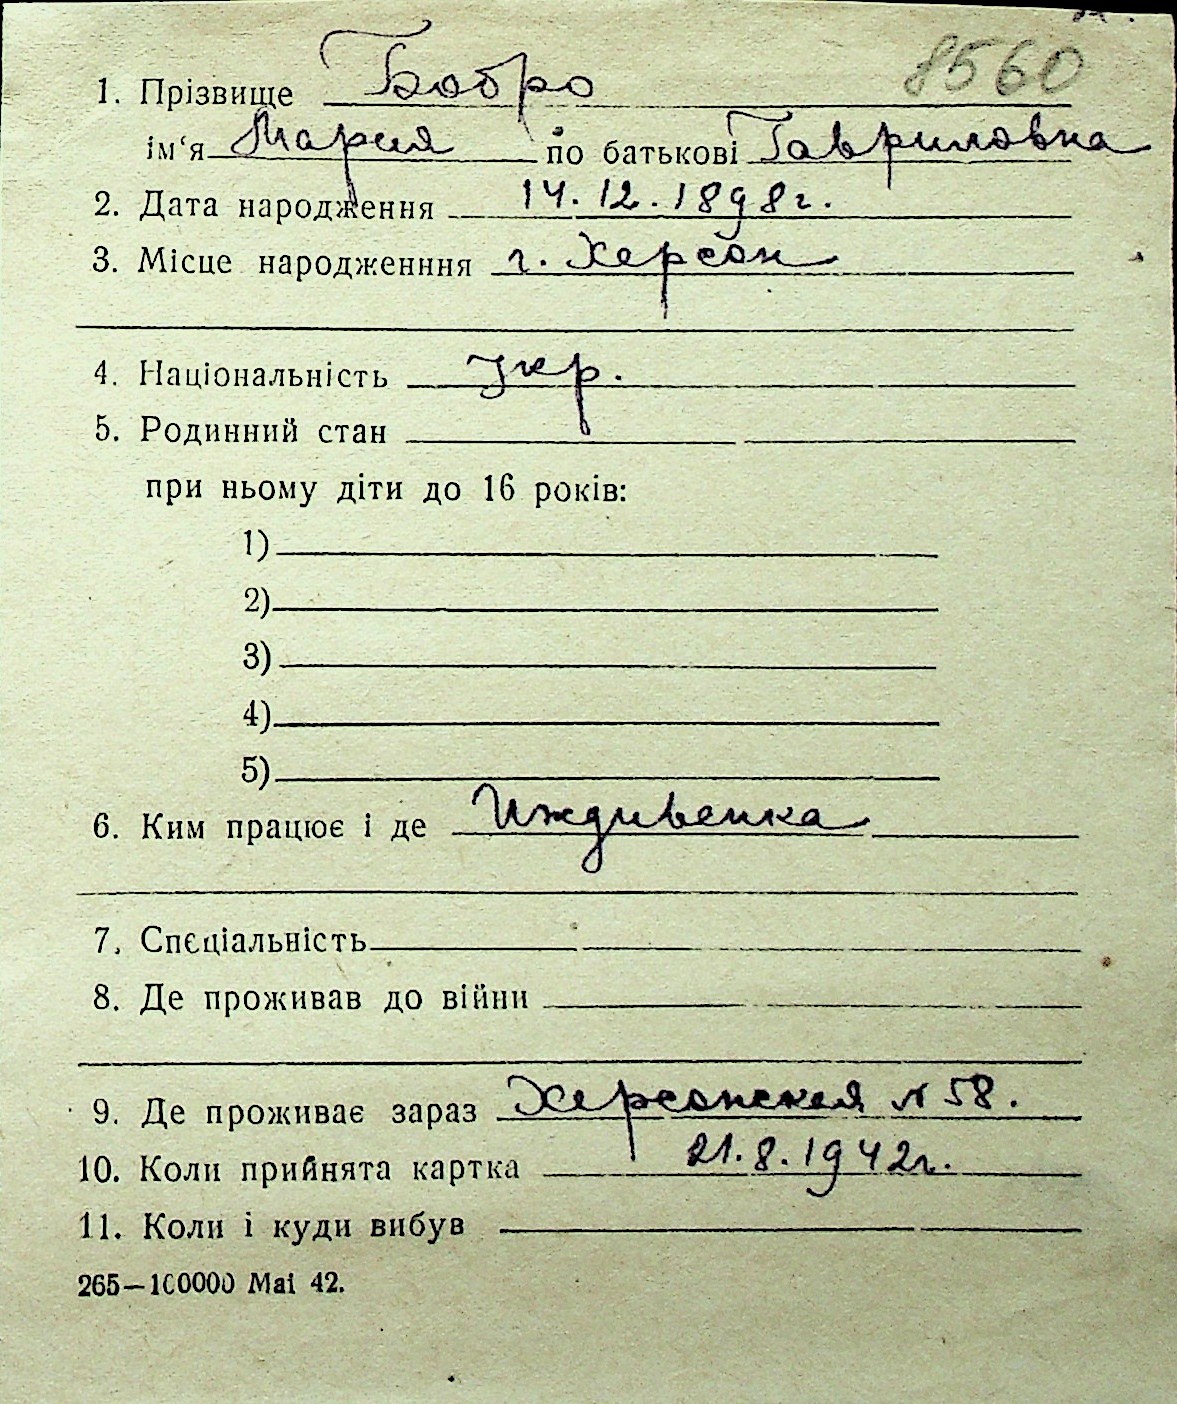 8560
1. Прізвище Бобро
ім'я Мария по батькові Гавриловна
2. Дата народження 14.12.1898г.
3. Місце народженння г. Херсон
4. Національність Укр.
5. Родинний стан
при ньому діти до 16 років:
1)
2)
3)
4)
5)
6. Ким працює і де Иждивенка
7. Спєціальність
8. Де проживав до війни
9. Де проживає зараз Херсонская № 58.
10. Коли прийнята картка 21.8.1942г.
11. Коли і куди вибув
265—100000 Mai 42.